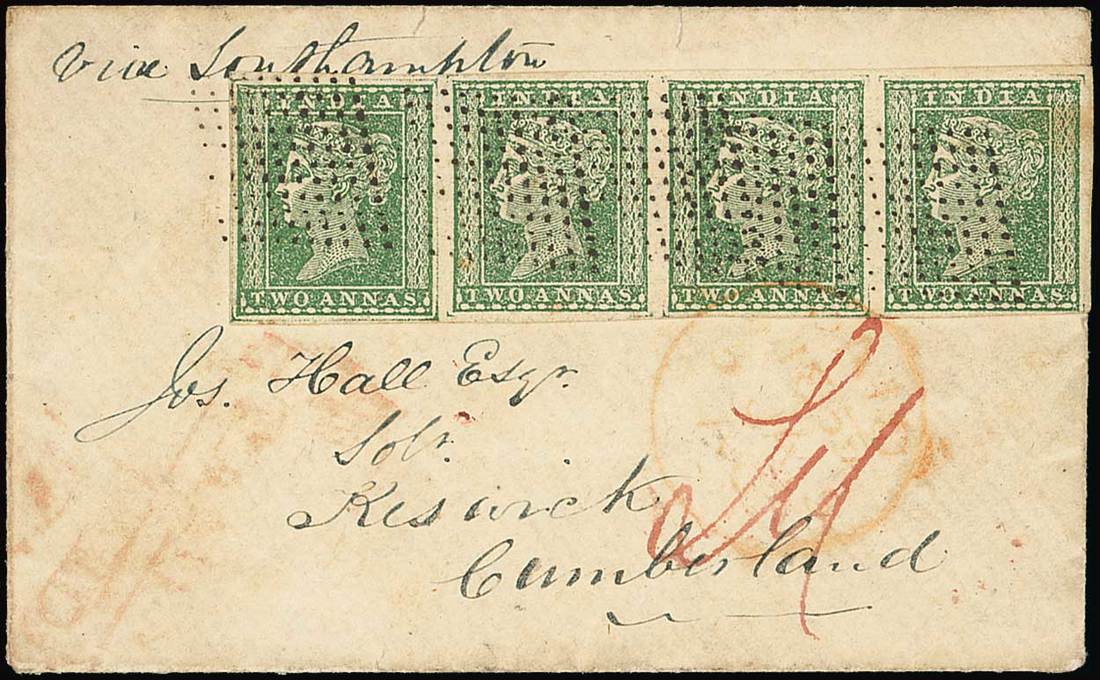 via Southampton
INDIA INDIA INDIA INDIA
TWO ANNAS. TWO ANNAS. TWO ANNAS. TWO ANNAS.
Jos. Hall Esqr.
Solr.
Keswick
Cumberland